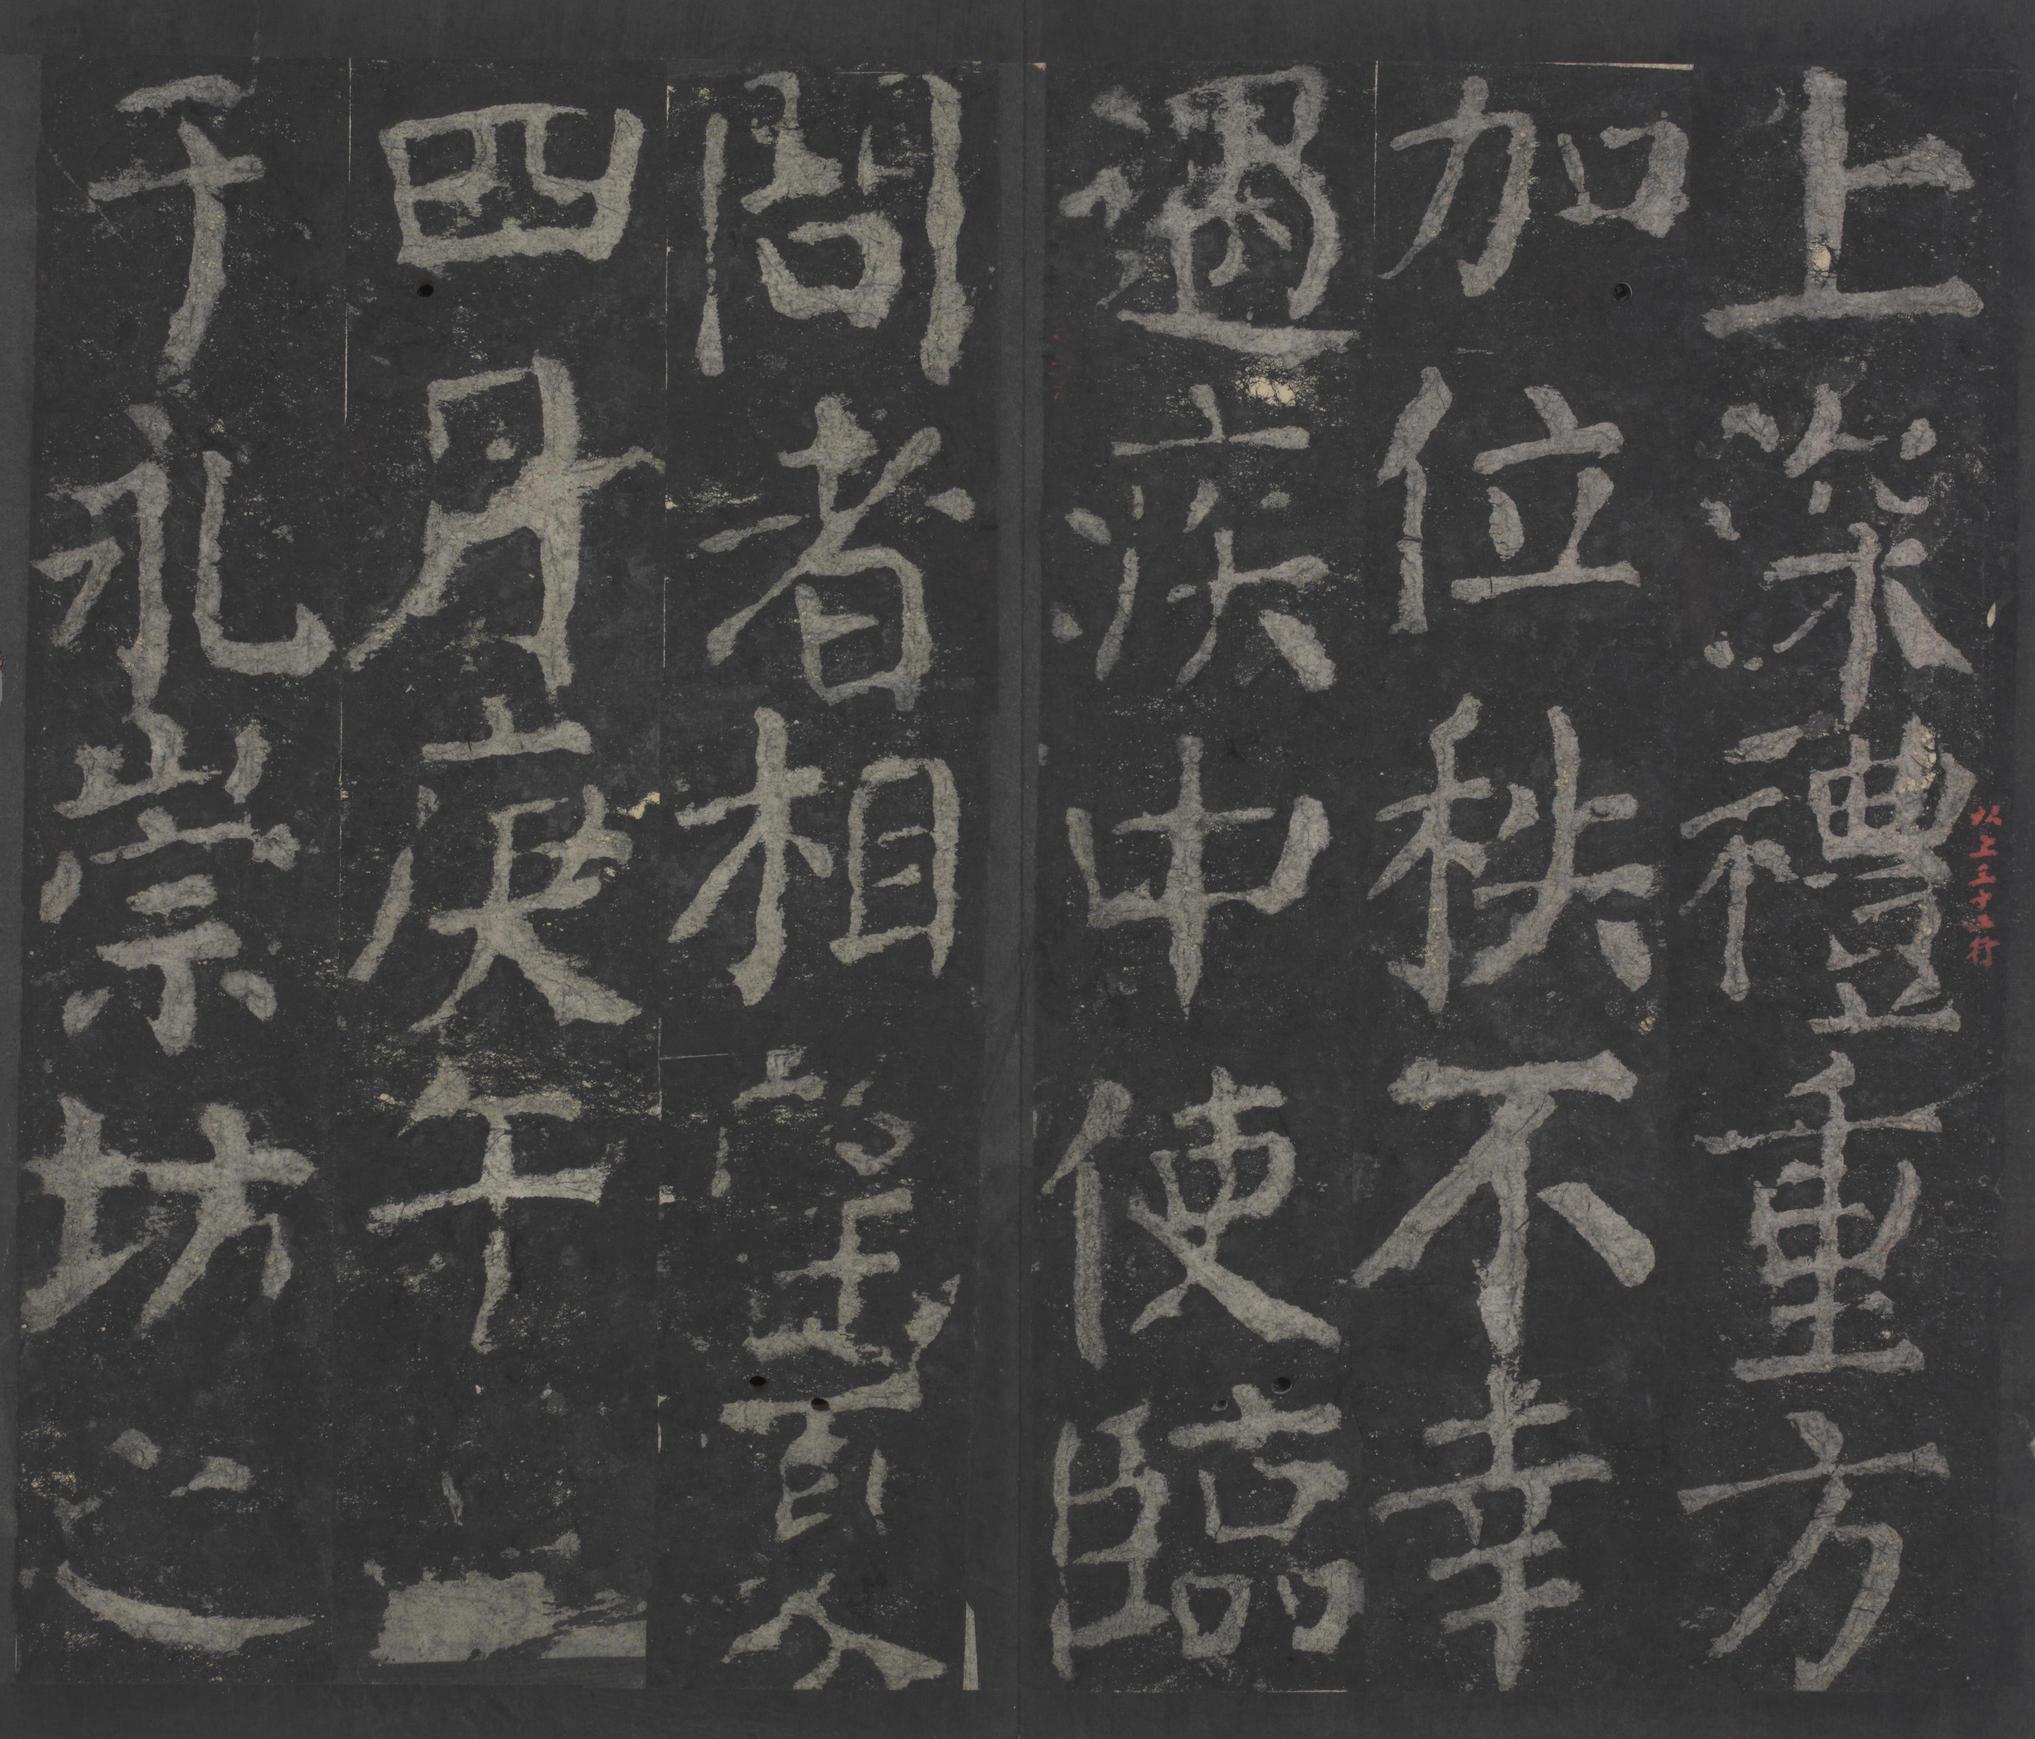 上深禮重方
加位秩不幸
遇疾中使臨
問者相望夏
四月庚午
于永崇坊之
以上三十行